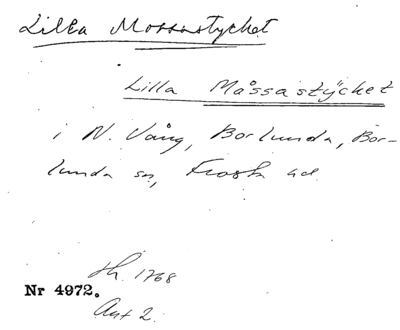 Lilla Mossastycket
Lilla Måssastÿcket
i N. Vång, Borlunda, Bor-
lunda sn, Frosta hd
Sk. 1768
Nr 4972.
Akt 2.